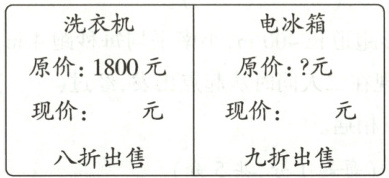 洗衣机
原价:1800元
现价: 元
八折出售
电冰箱
原价:?元
现价: 元
九折出售